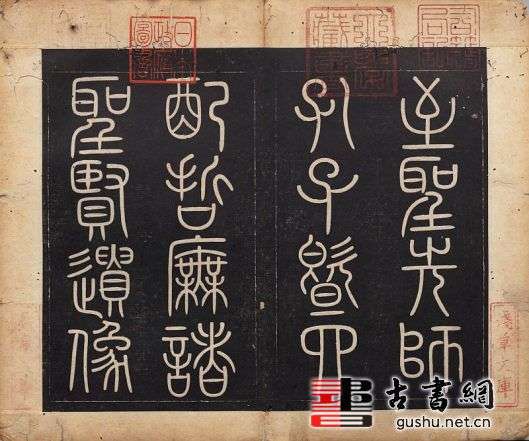 至聖先師
孔子暨四
配哲廡諸
聖賢遺像
古書網
gushu.net.cn